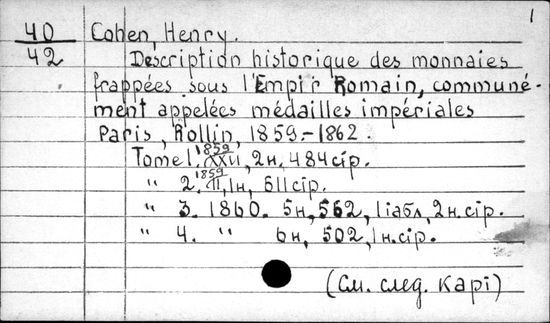 1
40
42
Cohen, Henry.
Description historique des monnaies
frappées sous l'Empir Romain, communé-
ment appelées médailles impériales
Paris, Rollin, 1859.-1862.
Tome 1. 1859 XXVI, 2н, 484 сір.
" 2. 1859 II, 1н, 511 сір.
" 3. 1860. 5н, 562, 1 іабл, 2н. сір.
" 4. " 6н, 502, 1н. сір.
(См. след. карі)